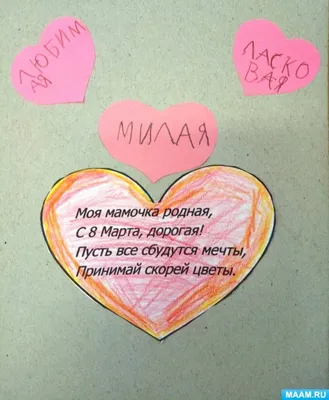 ЛЮБИМ
АЯ
ЛАСКО
ВАЯ
МИЛАЯ
Моя мамочка родная,
С 8 Марта, дорогая!
Пусть все сбудутся мечты,
Принимай скорей цветы.
MAAM.RU